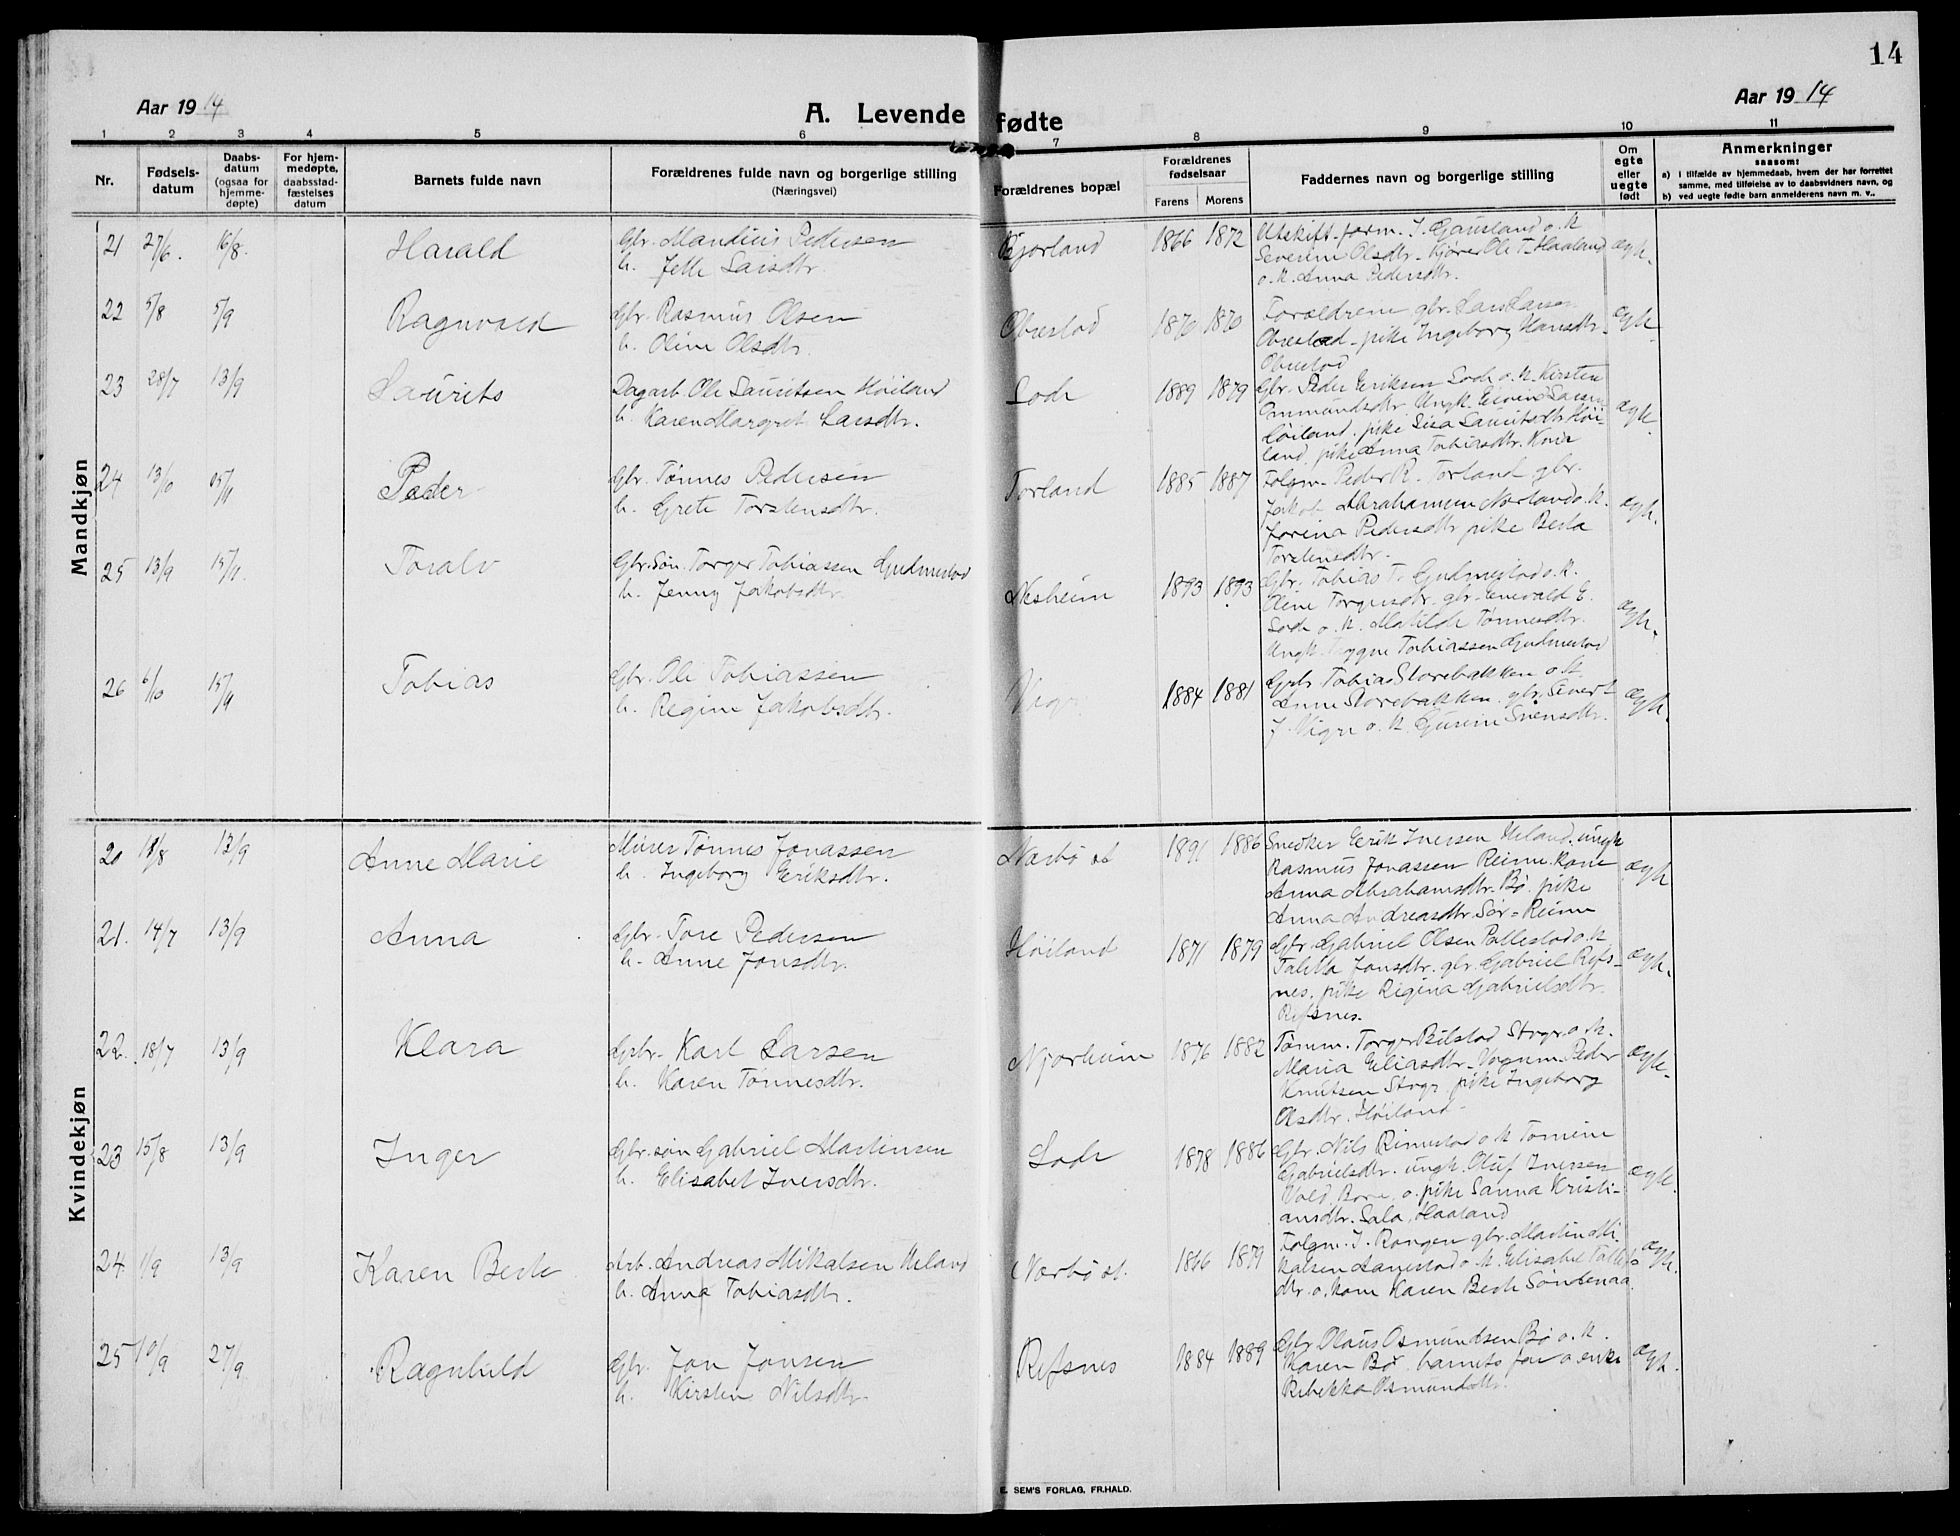 14
Aar 1914
A. Levende fødte
Aar 1914
1 2 3 4 5 6 7 8 9 10 11
Nr.
Fødsels-
datum
Daabs-
datum
(ogsaa for
hjemme-
døpte)
For hjem-
medøpte,
daabsstad-
fæstelses
datum
Barnets fulde navn
Forældrenes fulde navn og borgerlige stilling
(Næringsvei)
Forældrenes bopæl
Forældrenes
fødselsaar
Farens Morens
Faddernes navn og borgerlige stilling
Om
egte
eller
uegte
født
Anmerkninger
saasom:
a) i tilfælde av hjemmedaab, hvem der har forrettet
samme, med tilføielse av to daabsvidners navn, og
b) ved uegte fødte barn anmelderens navn m. v..
Mandkjøn
21 27/6. 16/8. Harald
Gbr. Mandius Pedersen
h. Jette Larsdtr.
Bjorland 1866 1872
Utskift.form. J. Gausland o. k
Severine Olsdtr. Kjører Ole T. Haaland
o. k. Anna Pedersdtr.
ægte.
22 5/8 5/9 Ragnvald
Gbr. Rasmus Olsen
h. Oline Olsdtr.
Obrestad 1870 1870
Forældrene gbr. Lars Larsen
Obrestad. pike Ingeborg Hansdtr.
Obrestad
ægte.
23 28/7 13/9 Laurits
Dagarb. Ole Lauritsen Høiland
h. Karen Margret Larsdtr.
Lode 1889 1879
Gbr. Peder Eriksen Lode o. k. Kirsten
Ommundsdtr. Ungk.
Høiland. pike Lisa Lauritsdtr. Høi-
land, pike Anna Tobiasdtr.
ægte.
24 13/10 15/11 Peder
Gbr. Tønnes Pedersen
h. Grete Torstensdtr.
Torland 1885 1887
Folgm. Peder R. Torland gbr.
Jakob Abrahamsen o. k.
Jorina Pedersdtr pike Berta
Torstensdtr.
ægte.
25 13/9 15/11. Toralv
Gbr.søn. Torger Tobiassen Gudmestad
h. Jenny Jakobsdtr.
1893 1893
Gbr. Tobias T. Gudmestad o. k.
Oline Torgersdtr. gbr. Enevald E.
Lode o. k. Matilde Tønnesdtr.
Ungk. Trygve Tobiassen Gudmestad
ægte.
26 6/10 15/11 Tobias
Gbr. Ole Tobiassen
h. Regine Jakobsdtr.
Vigre 1884 1881
Gbr. Tobias Storebakken o. k.
Anne Storebakken. gbr. Sivert
J. Vigre o. k. Gurine Svensdtr.
ægte.
Kvindekjøn
20 18/8 13/9 Anne Marie
Murer Tønnes Jonassen
h. Ingeborg Eriksdtr.
Nærbø st 1891 1886
Snedker Erik Iversen Meland. ungk
Rasmus Jonassen Reime. kone
Anna Abrahamsdtr. Bø. pike
Anna Andreasdtr. Sør-Reime
ægte
21. 14/7 13/9 Anna
Gbr. Tore Pedersen
h. Anne Jonsdtr.
Høiland 1871 1879
Gbr. Gabriel Olsen Pollestad o. k
Talitta Jonsdtr. gbr. Gabriel Refs-
nes. pike Regina Gabrielsdtr.
Refsnes.
ægte.
22. 18/7 13/9 Klara
Gbr. Karl Larsen
h. Karen Tønnesdtr.
Njærheim 1876 1882
Tømm. Torger Bilstad Stvgr. o. k.
Maria Eliasdtr. Vognm. Peder
Knutsen Stvgr. pike Ingeborg
Olsdtr. Høiland.
ægte.
23 15/8 13/9 Inger
Gbr.søn Gabriel Martinsen
h. Elisabet Iversdtr.
Lode 1878 1886
Gbr. Nils Rimestad o. k Tomine
Gabrielsdtr. ungk. Oluf Iversen
Vold, Bore, o. pike Sanna Kristi-
ansdtr. Sola, Haaland
ægte.
24. 1/9 13/9 Karen Berte
Arb. Andreas Mikalsen Meland
h. Anna Tobiasdtr.
Nærbø st. 1866 1879
Folgm. J. Rongen gbr. Martin Mi-
kalsen Aanestad o. k. Elisabet
dtr. o. kone Karen Berte Søndenaa
ægte.
25 10/9 27/9 Ragnhild
Gbr. Jon Jonsen
h. Kirsten Nilsdtr.
Refsnes 1884 1889
Gbr. Olaus Osmundsen Bø o. k.
Karen Bø. barnets far o. enke
Rebekka Osmundsdtr.
ægte.
E. SEM'S FORLAG, FR.HALD.